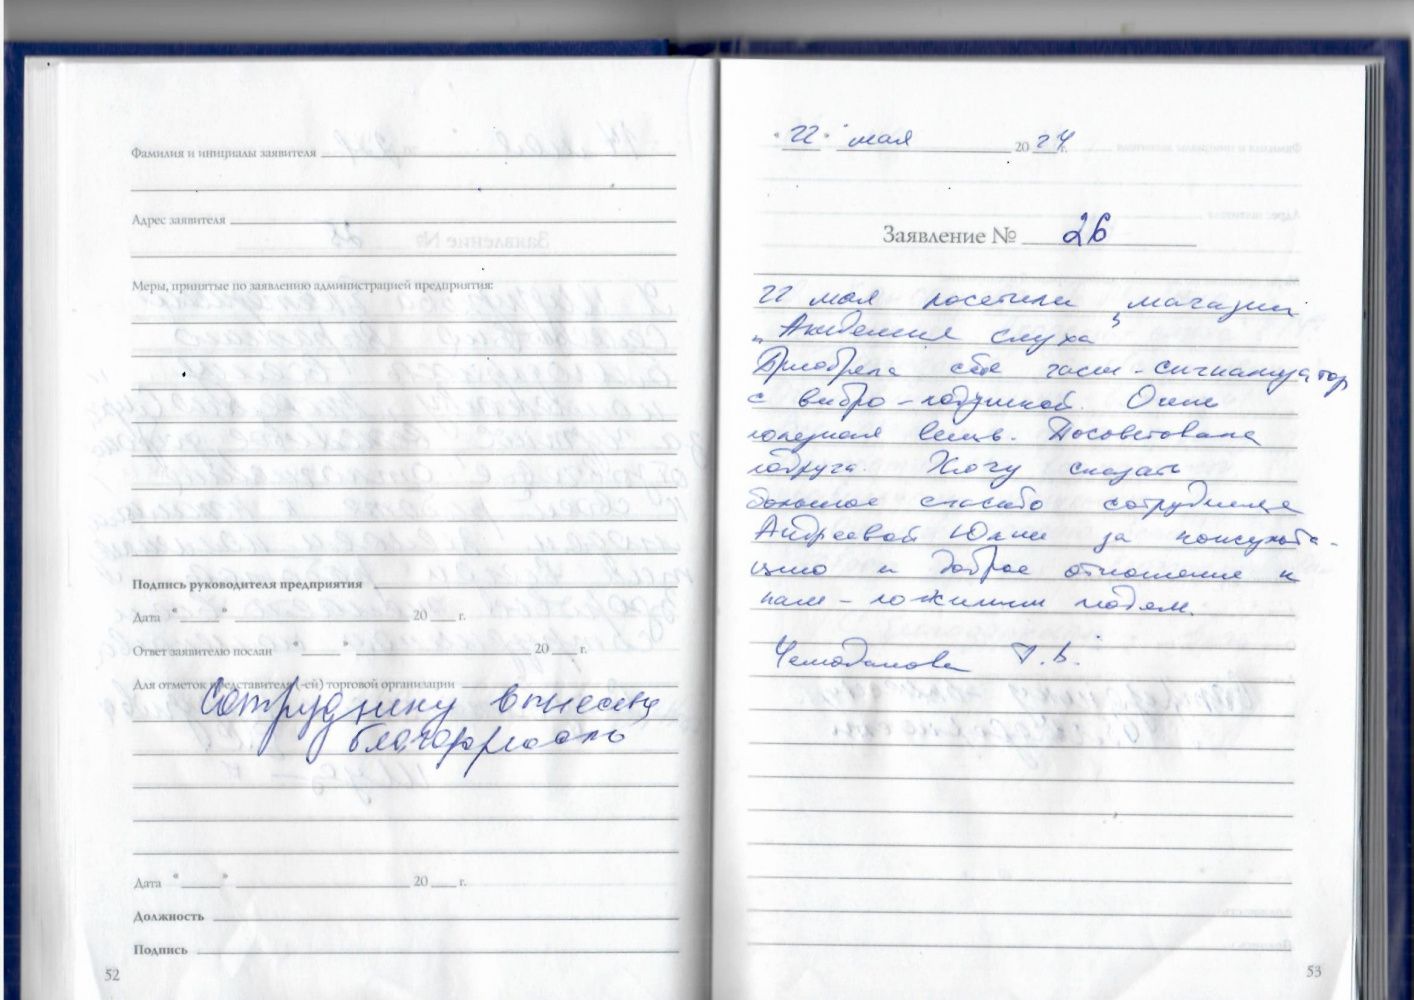 Фамилия и инициалы заявителя
Адрес заявителя
Меры, принятые по заявлению администрацией предприятия:
Подпись руководителя предприятия
Дата " " 20 г.
Ответ заявителю послан " " 20 г.
Для отметок представителя (-ей) торговой организации
Сотруднику вынесена
благодарность
Дата " " 20 г.
Должность
Подпись
52
"22" мая 2024 г.
Заявление № 26
22 мая посетили магазин
"Академия слуха"
Приобрела себе часы-сигнализатор
с вибро-подушкой. Очень
полезная вещь. Посоветовала
подруга. Хочу сказать
большое спасибо сотруднице
Андреевой Юлии за консульта-
цию и доброе отношение к
нам - пожилым людям.
Чемоданова Т.В.
53